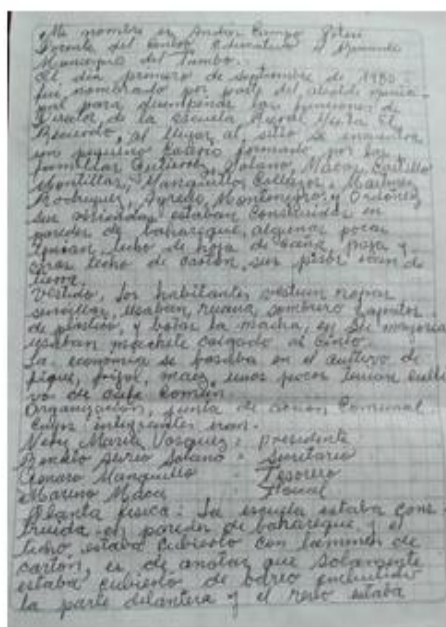 Mi nombre es Andrés Campo
Docente del Centro Educativo el Recuerdo
Municipio del Tambo.
El día primero de septiembre de 1980
fui nombrado por parte del alcalde munici
pal para desempeñar las funciones de
Director de la escuela Rural Mixta El
Recuerdo, al llegar al sitio se encuentra
un pequeño Caserío formado por las
familias Gutierrez, Solano, Castillo
Montilla, Manquillo, Collazos,
Rodriguez, Agredo, Montenegro y Ordoñez
sus viviendas estaban construidas en
paredes de bahareque, algunas pocas
tenian techo de hoja de caña, paja y
otras techo de cartón, sus pisos eran de
tierra.
Vestido, los habitantes vestian ropas
sencillas, usaban, ruana, sombrero zapatos
de plastico, y botas la macha, en su mayoria
usaban machete colgado al cinto.
La economia se basaba en el cultivo de
fique, frijol, maiz, unos pocos tenian culti
vo de café común.
Organización, junta de acción Comunal
cuyos integrantes eran.
Nery Maria Vasquez : presidente
Benito Solano : Secretario
Genaro Manquillo : Tesorero
Marino : Fiscal
Planta física : La escuela estaba cons
truida en paredes de bahareque y el
techo, estaba cubierto con laminas de
cartón, es de anotar que solamente
estaba cubierto de barro
la parte delantera y el resto estaba